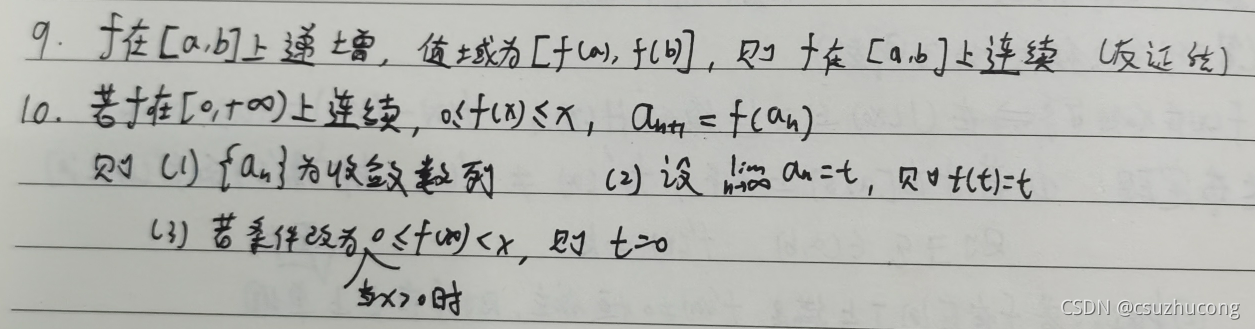 9. f在[a,b]上递增, 值域为[f(a), f(b)], 则 f在[a,b]上连续 (反证法)
10. 若f在[0,+∞)上连续, 0≤f(x)≤x, aₙ₊₁=f(aₙ)
则 (1) {aₙ}为收敛数列 (2) 设 lim n→∞ aₙ=t, 则f(t)=t
(3) 若条件改为 0≤f(x)<x, 则 t=0
当x>0时
CSDN @csuzhucong